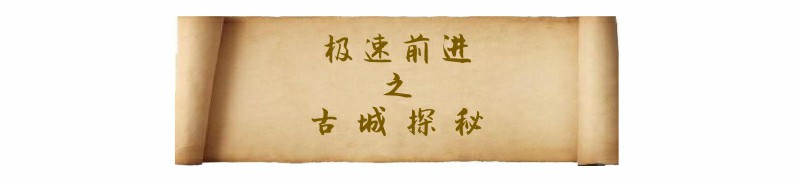 极速前进
之
古城探秘